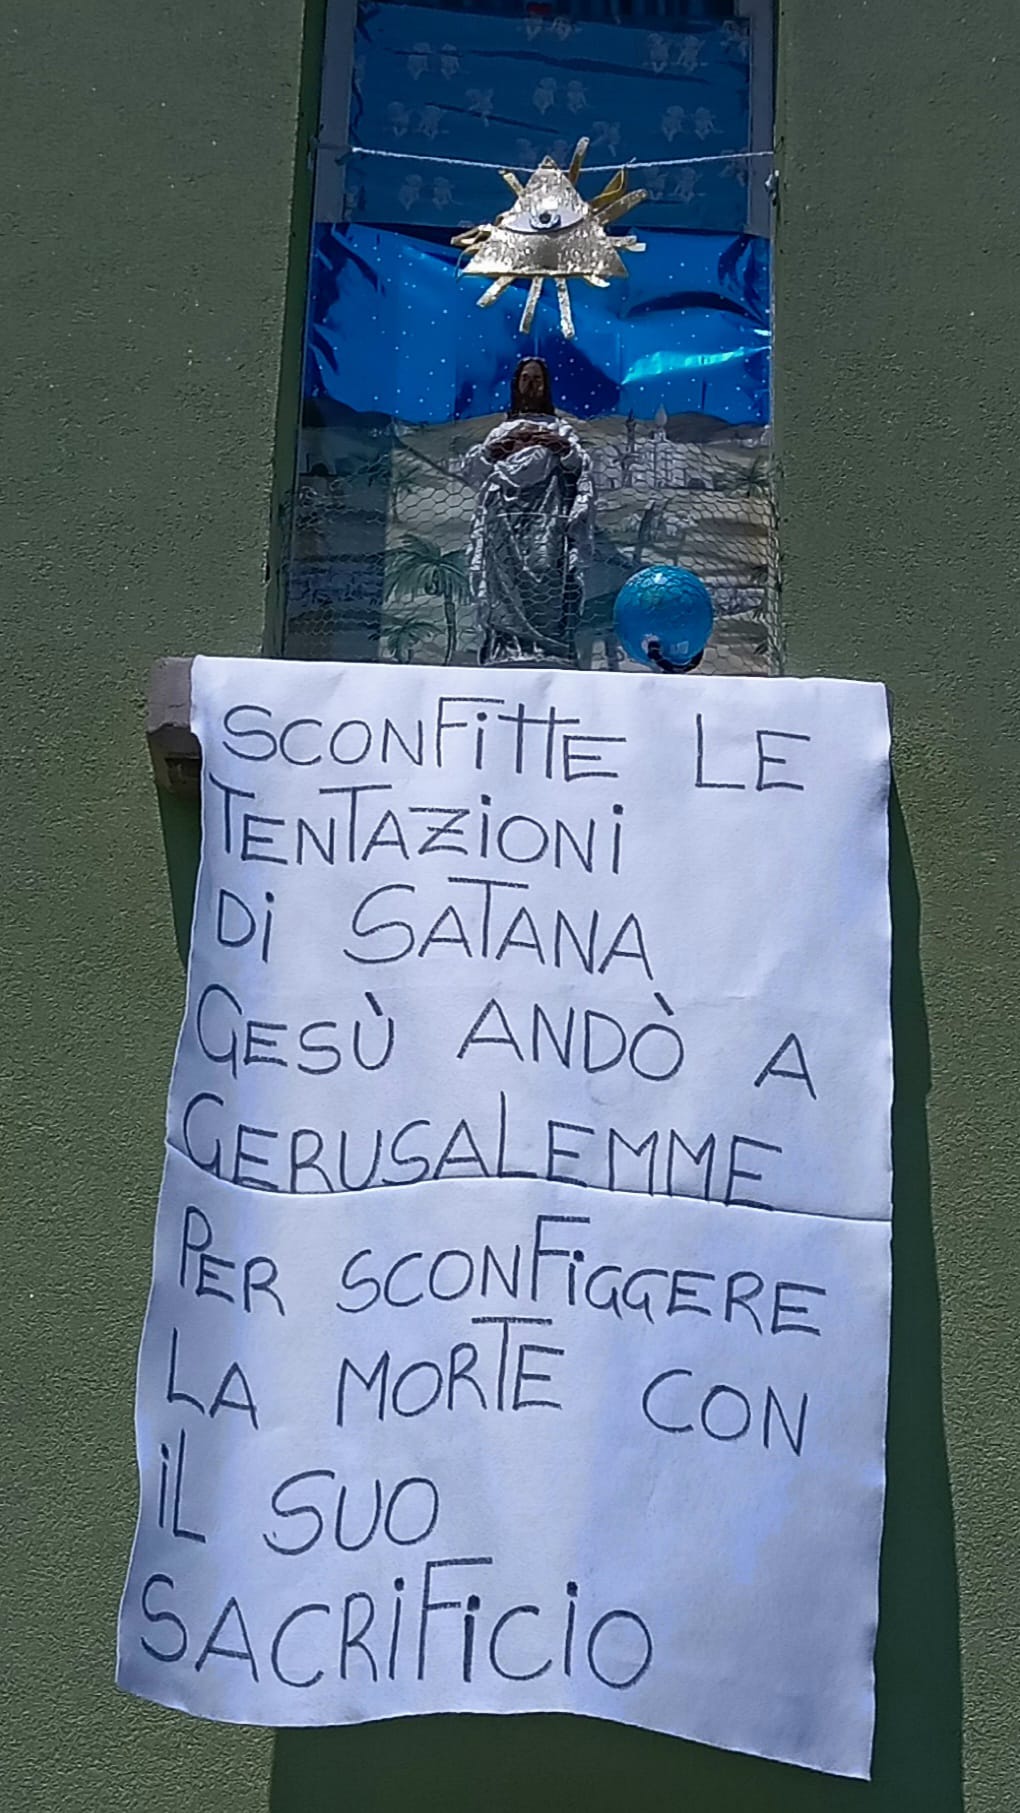 SCONFITTE LE
TENTAZIONI
Di SATANA
GESÙ ANDÒ A
GERUSALEMME
PER SCONFIGGERE
LA MORTE CON
iL SUO
SACRiFiCiO